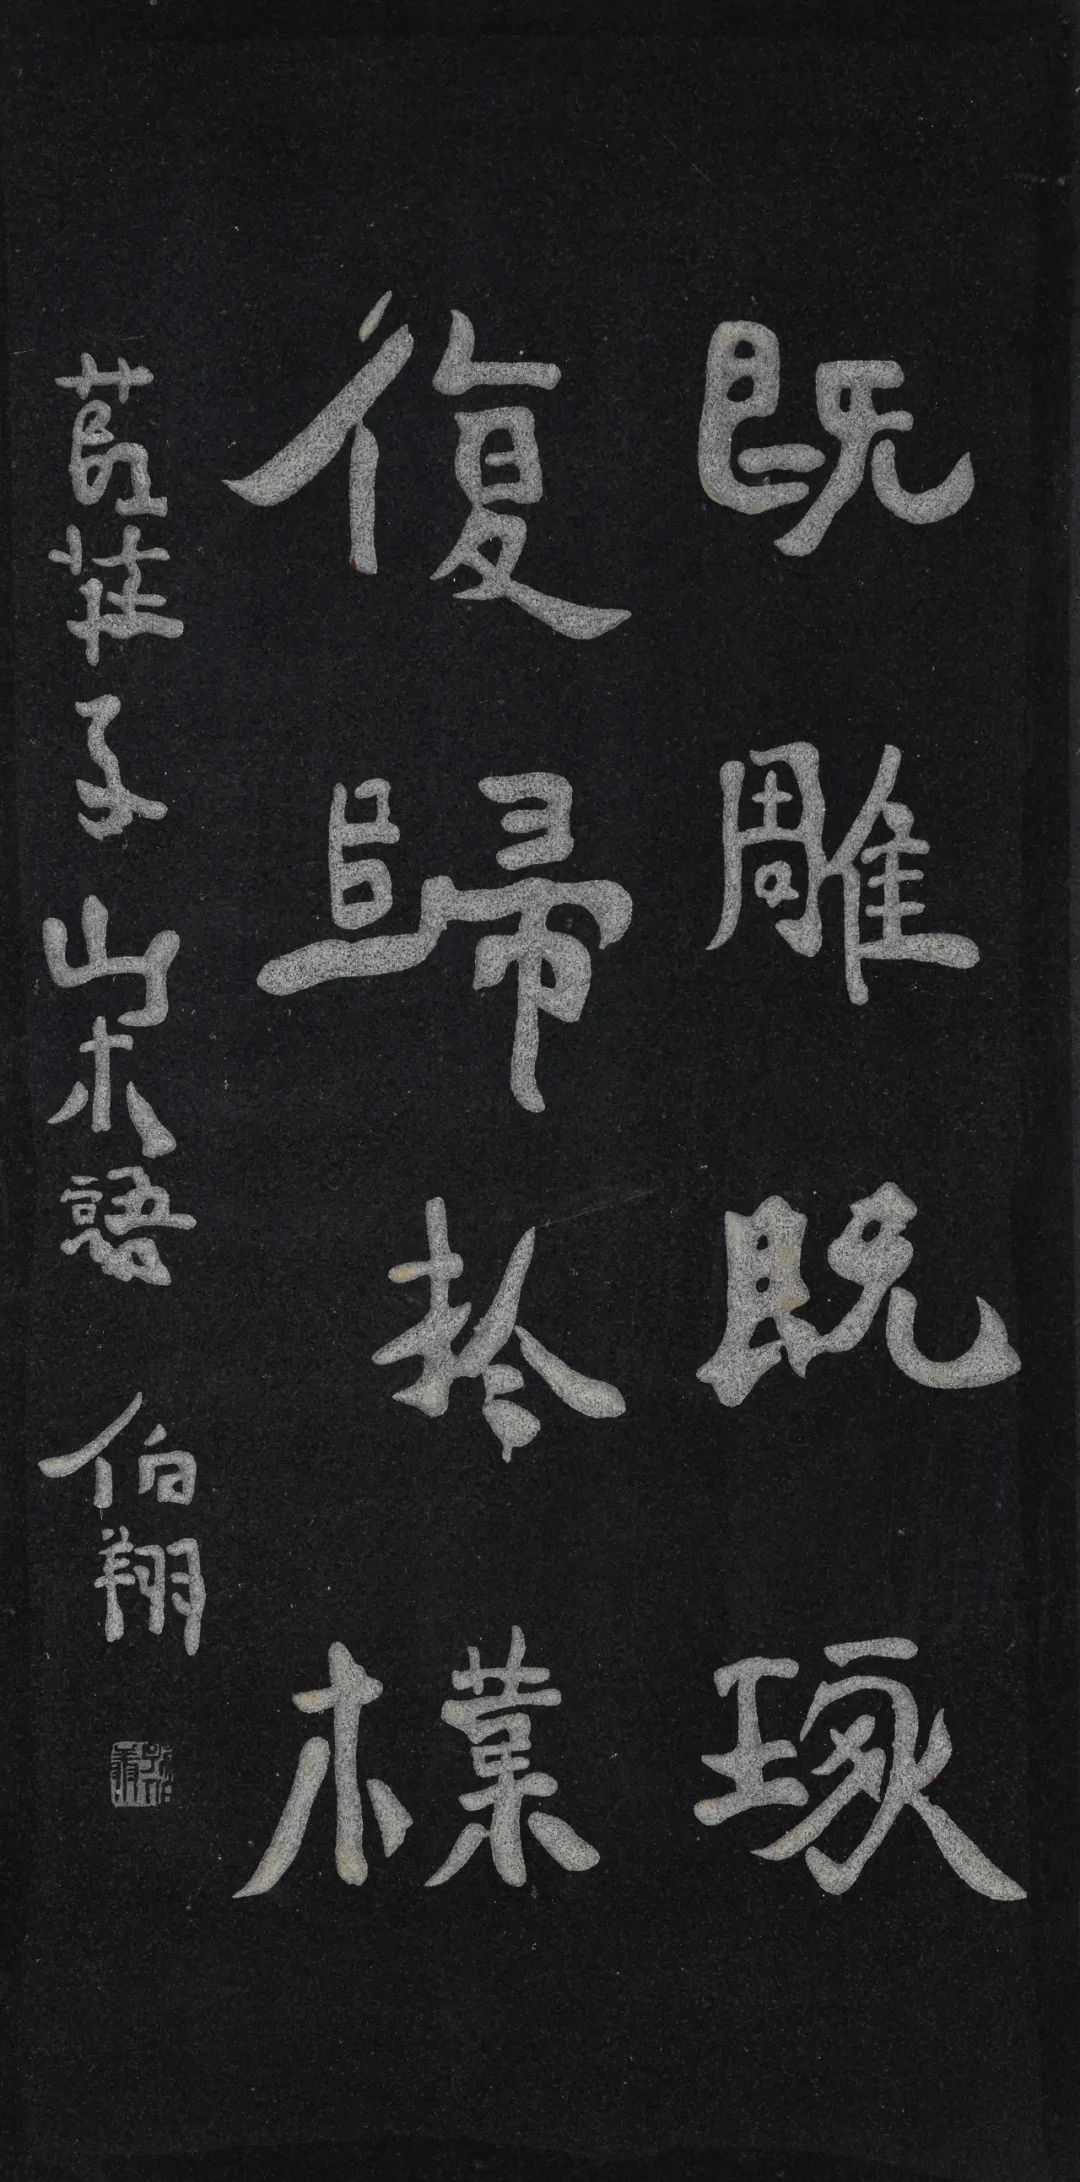 既雕既琢
復歸於樸
莊子山木語 伯翔